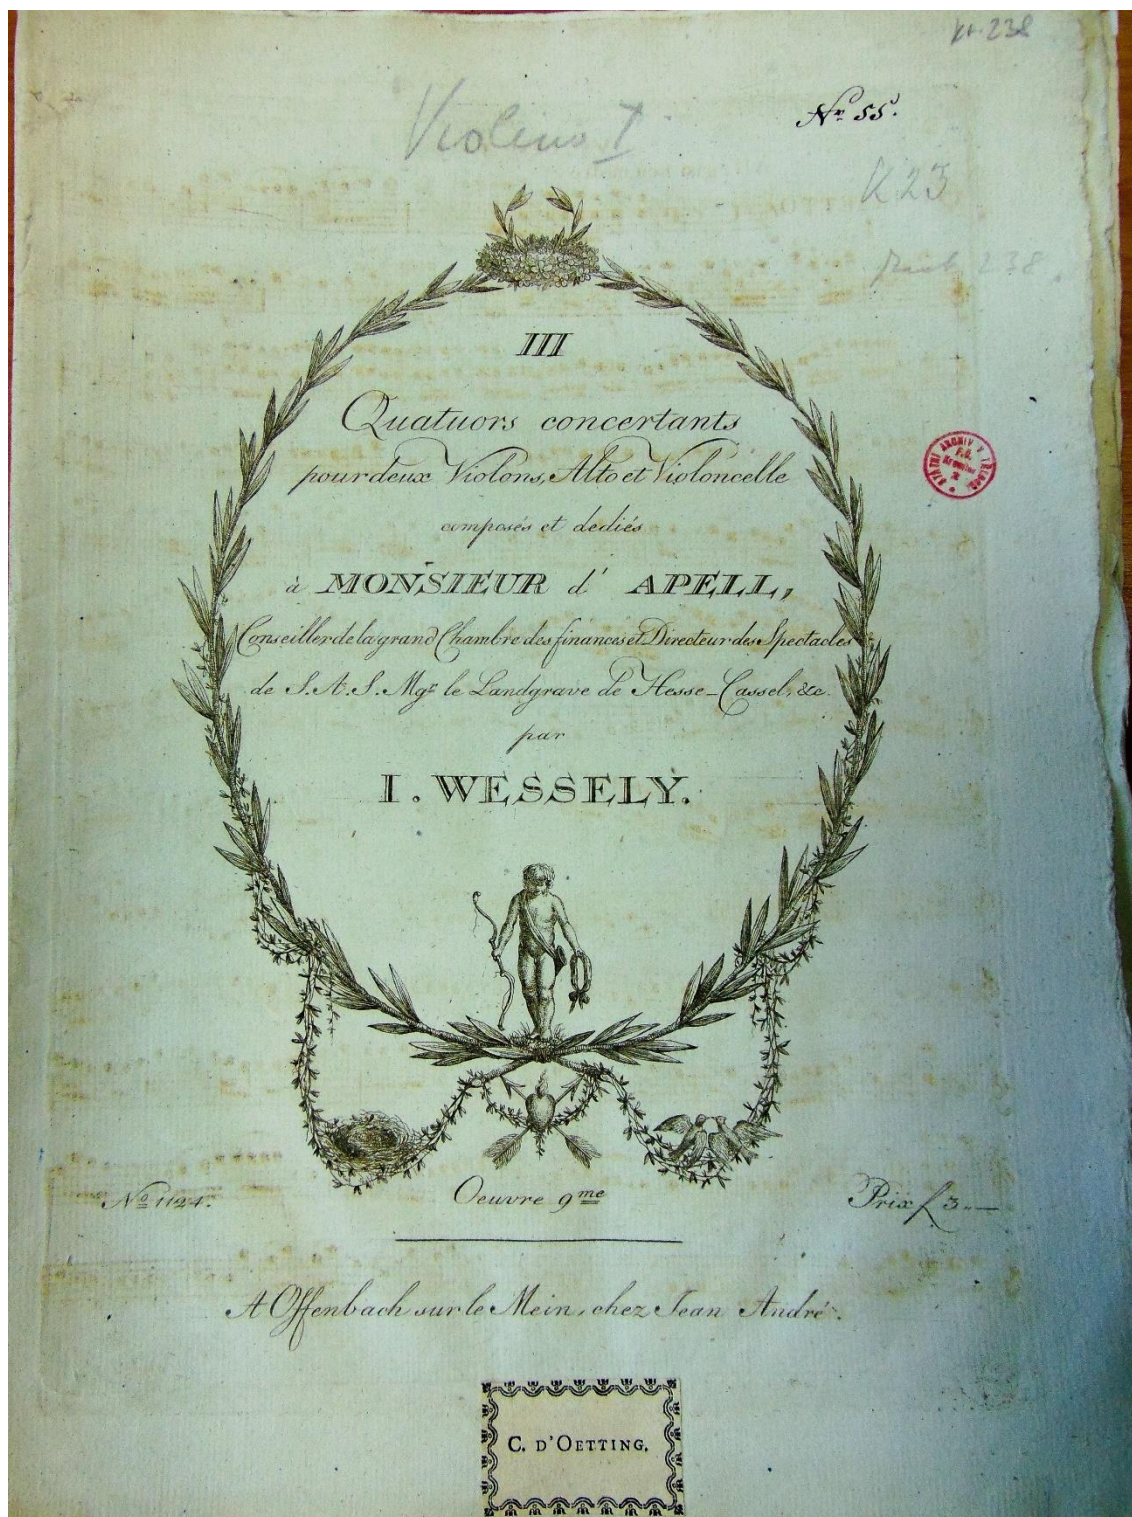 238
Violino I
Nr. 55.
K 23
238
III
Quatuors concertants
pour deux Violons, Alto et Violoncelle
composés et dediés
à MONSIEUR d' APELL,
Conseiller de la grand Chambre des finances et Directeur des Spectacles
de S. A. S. Mgr. le Landgrave de Hesse-Cassel, &c.
par
I. WESSELY.
No 1124.
Oeuvre 9me
Prix f 3.—
A Offenbach sur le Mein, chez Jean André.
C. D'OETTING.